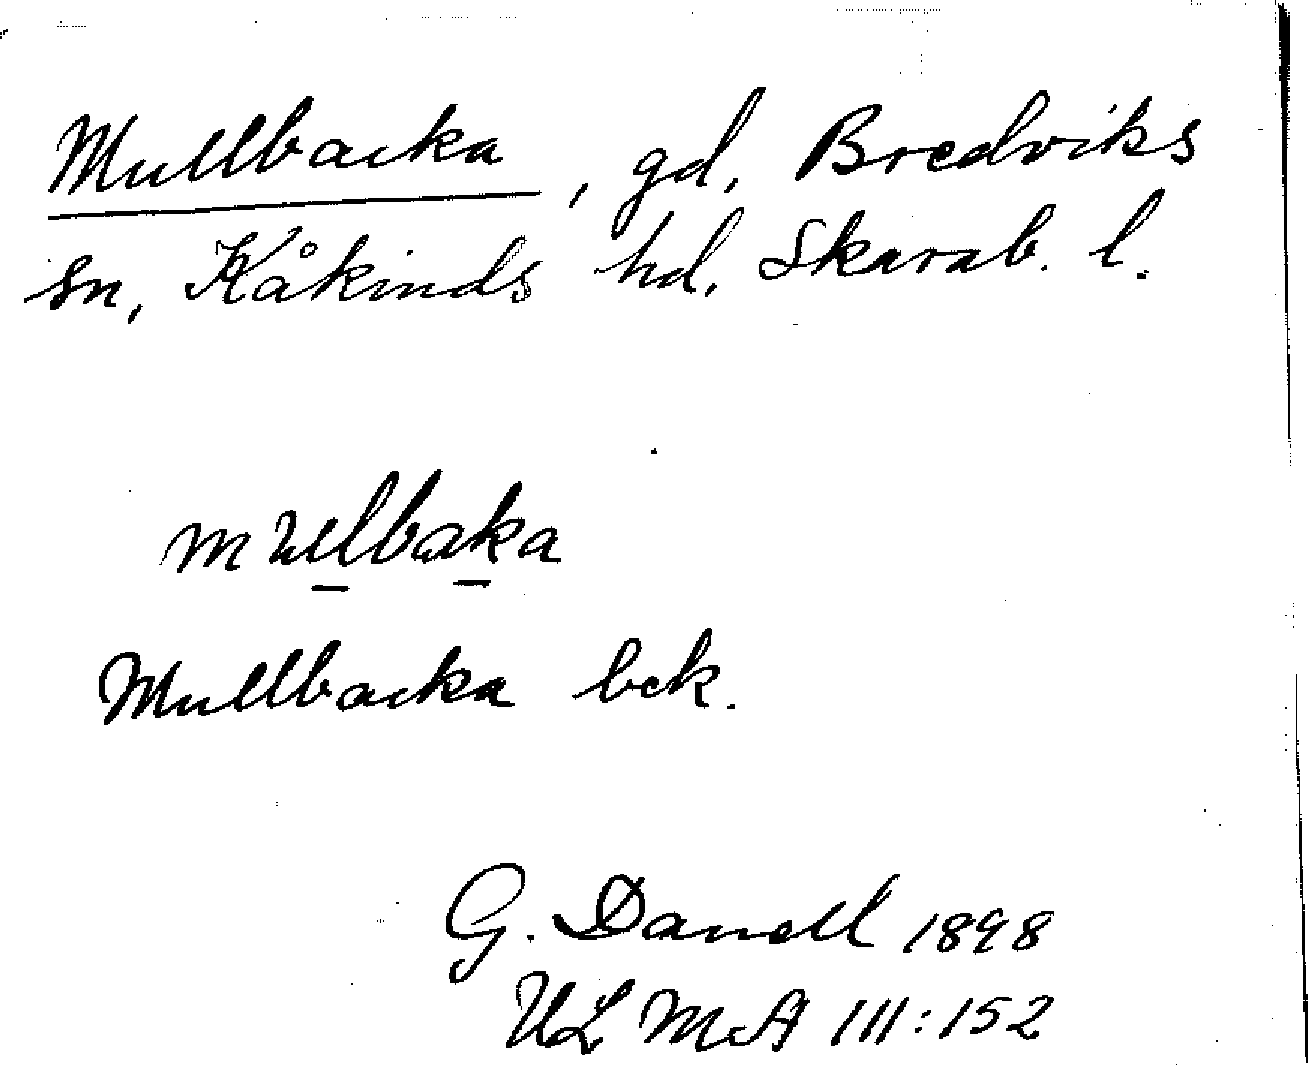 Mullbacka, gd, Bredviks
sn, Kåkinds hd, Skarab. l.
mulbaka
Mullbacka bck.
G. Danell 1898
ULMA 111:152